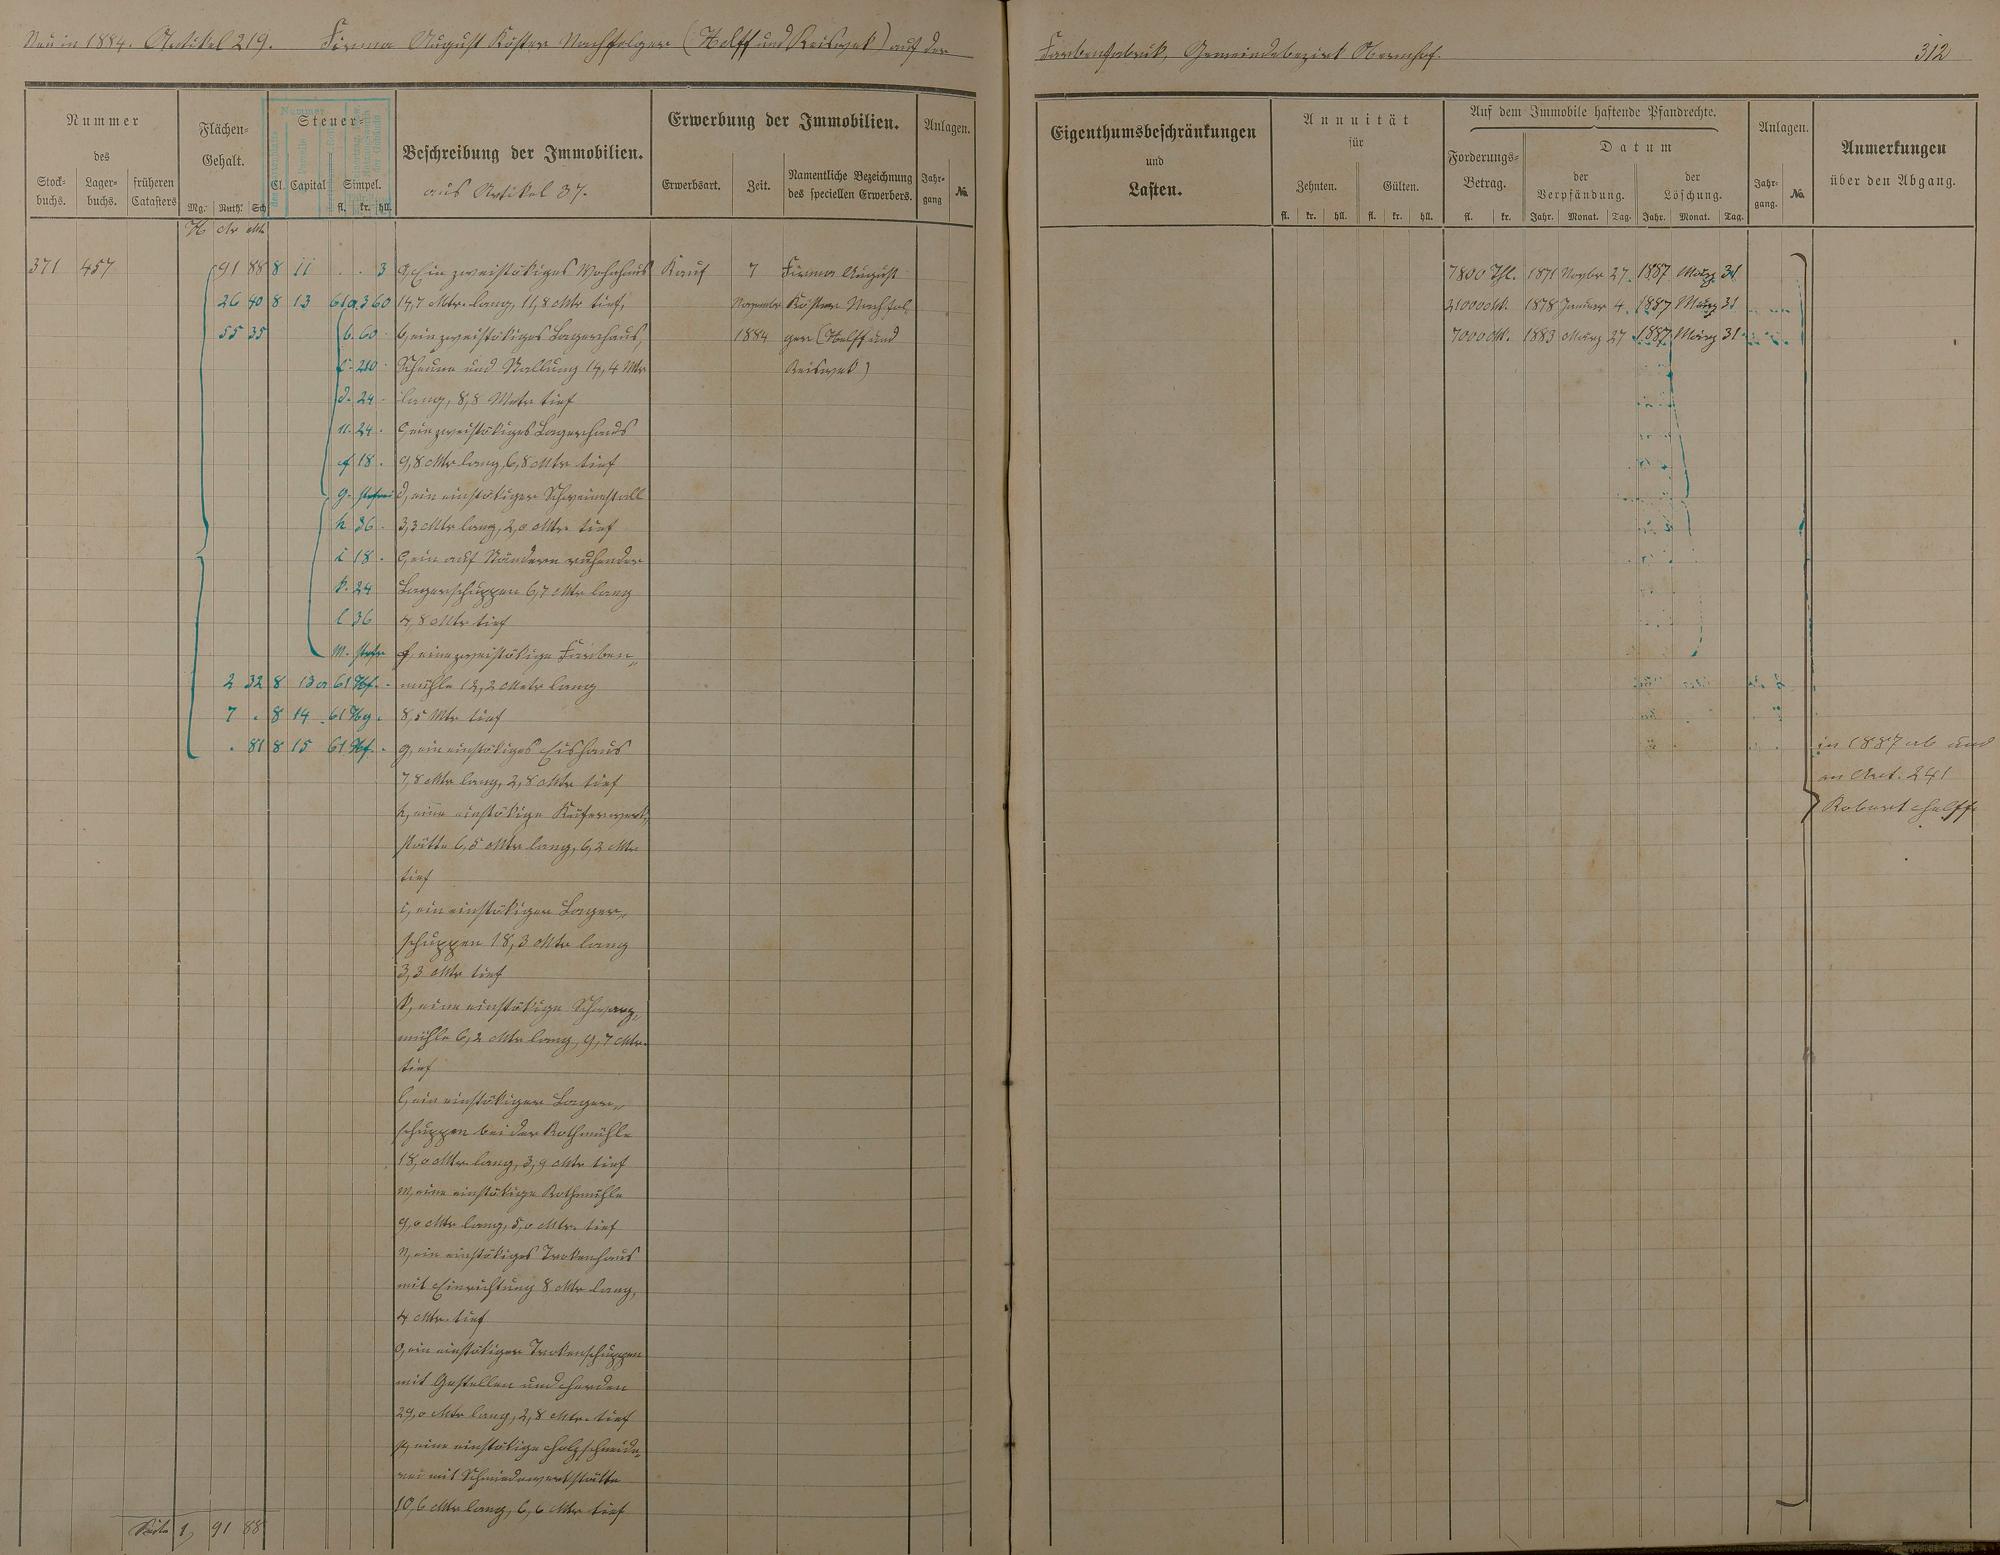 Neu in 1884. Artikel 219. Firma August Köster Nachfolger (Helff und Reiswek) auf der
Farbenfabrik, Gemeindebezirk Obernhof. 312
Nummer
des
Stock-
buchs.
Lager-
buchs.
früheren
Catasters
Flächen-
Gehalt.
Mg. Ruth. Sch
H Ar Mtr
Steuer-
Cl. Capital Simpel.
fl. kr. hll.
Nummer
Beschreibung der Immobilien.
aus Artikel 37.
Erwerbung der Immobilien.
Erwerbsart. Zeit. Namentliche Bezeichnung
des speciellen Erwerbers.
Anlagen.
Jahr-
gang
No.
Eigenthumsbeschränkungen
und
Lasten.
Annuität
für
Zehnten. Gülten.
fl. kr. hll. fl. kr. hll.
Auf dem Immobile haftende Pfandrechte.
Forderungs-
Betrag.
fl. kr.
Datum
der
Verpfändung.
Jahr. Monat. Tag.
der
Löschung.
Jahr. Monat. Tag.
Anlagen.
Jahr-
gang.
No.
Anmerkungen
über den Abgang.
371 457 91 88 8 11 . . 3
26 40 8 13 61 a 3 60
55 35 b. 60
c. 210
d. 24
e. 24
f 18
g. stfrei
h 36
i 18
k. 24
l 36
m. stfr
2 32 8 13a 61 Hf.
7 . 8 14 61 Hg.
. 81 8 15 61 Hf.
a, Ein zweistökiges Wohnhaus
14,7 Mtr. lang, 11,8 Mtr tief,
b, ein zweistökiges Lagerhaus,
Scheune und Stallung 14,4 Mtr
lang, 8,8 Mtr tief
c, ein zweistökiges Lagerhaus
9,8 Mtr lang, 6,8 Mtr tief
d, ein einstökiger Schweinestall
3,3 Mtr lang, 2,0 Mtr. tief
e, ein auf Ständern ruhender
Lagerschuppen 6,7 Mtr lang
4,8 Mtr tief
f, eine zweistökige Farben„
mühle 12,2 Mtr lang
8,5 Mtr tief
g, ein einstökiges Eishaus
7,8 Mtr lang, 2,8 Mtr tief
h, eine einstökige Küferwerk„
stätte 6,5 Mtr lang, 6,2 Mtr
tief
i, ein einstökiger Lager„
schuppen 18,3 Mtr lang
3,3 Mtr tief
k, eine einstökige Schwarz„
mühle 6,2 Mtr lang, 9,7 Mtr.
tief
l, ein einstökiger Lager„
schuppen bei der Rothmühle
18,0 Mtr lang, 3,9 Mtr tief
m, eine einstökige Rothmühle
9,0 Mtr lang, 5,0 Mtr. tief
n, ein einstökiges Trokenhaus
mit Einrichtung 8 Mtr lang,
4 Mtr. tief
o, ein einstökiger Trokenschuppen
mit Gestellen und Horden
29,0 Mtr lang, 2,8 Mtr. tief
p, eine einstökige Holzschneide„
rei mit Schmiedewerkstätte
10,6 Mtr lang, 6,6 Mtr tief
Kauf 7 Firma August
November Köster Nachfol
1884 ger (Helff und
Reiswek)
7800 Thl. 1871 Novbr 27. 1887 März 31
21000 Mk. 1878 Januar 4. 1887 März 31
7000 Mk. 1883 März 27 1887 März 31
in 1887 ab und
an Art. 241
Robert Helff
Seite 1, 91 88